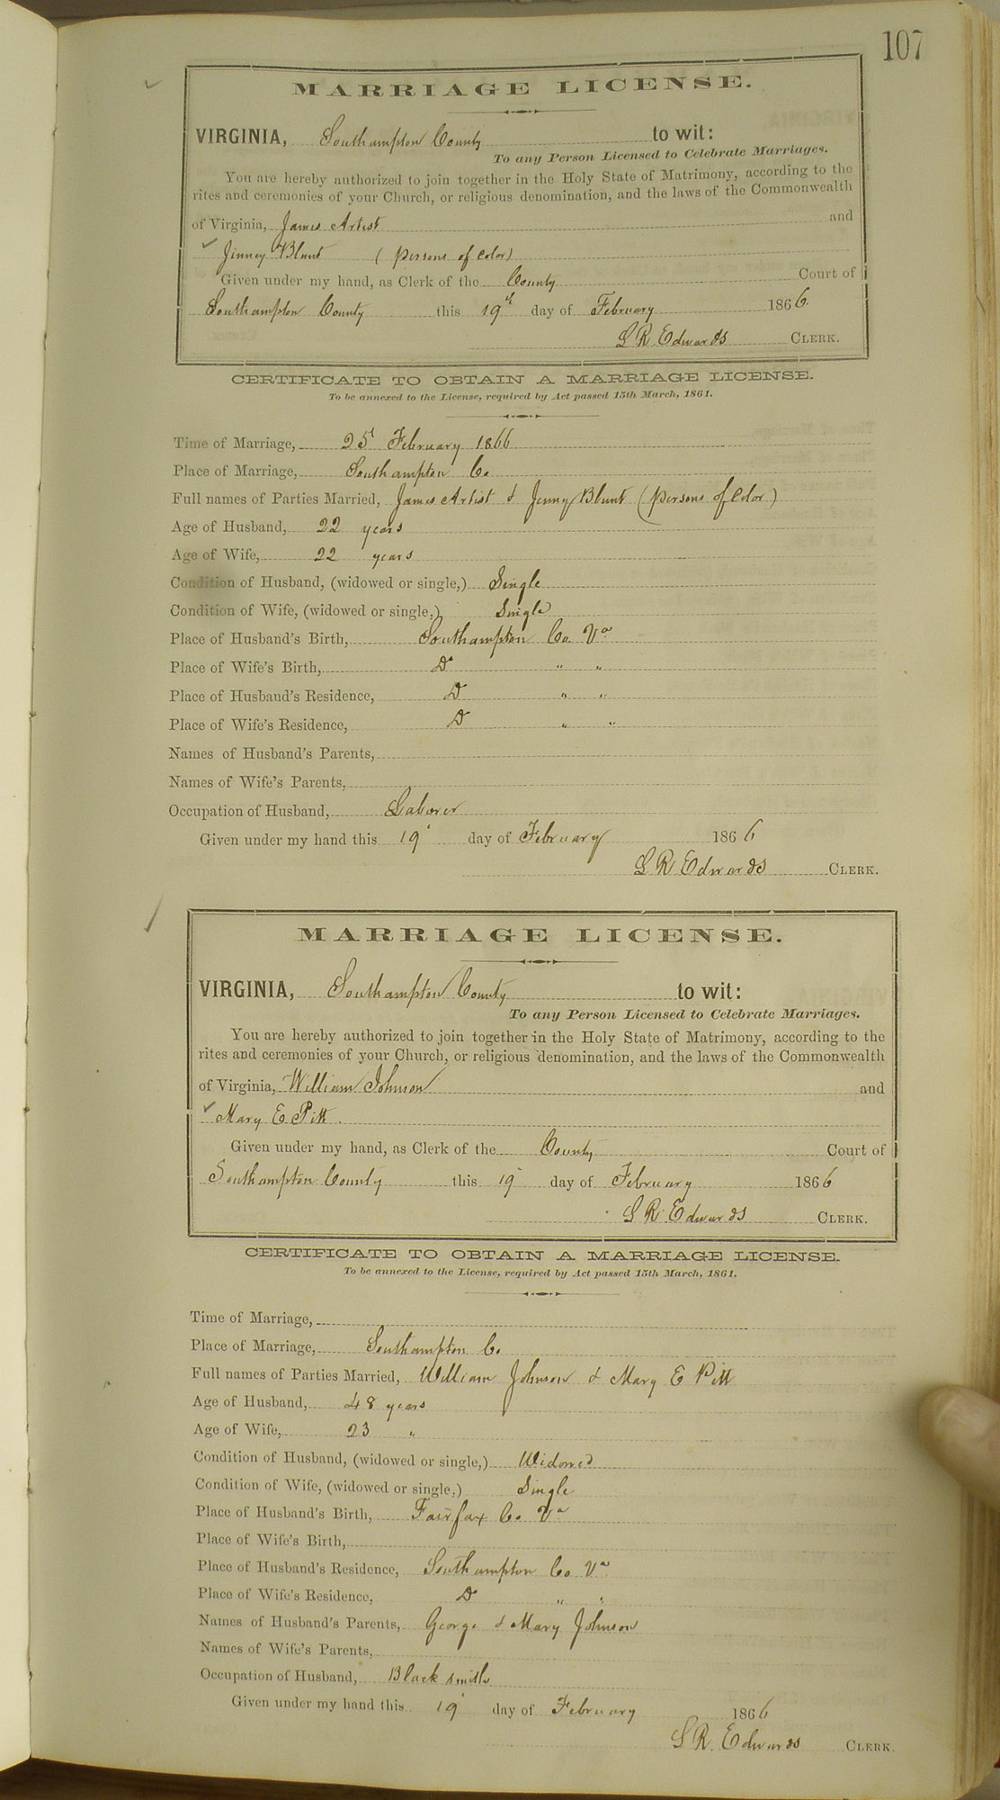 107
MARRIAGE LICENSE.
VIRGINIA, Southampton County to wit:
To any Person Licensed to Celebrate Marriages.
You are hereby authorized to join together in the Holy State of Matrimony, according to the
rites and ceremonies of your Church, or religious denomination, and the laws of the Commonwealth
of Virginia, James Artist and
✓ Jinney Blunt (persons of Color)
Given under my hand, as Clerk of the County Court of
Southampton County this 19th day of February 1866
L R Edwards CLERK.
CERTIFICATE TO OBTAIN A MARRIAGE LICENSE.
To be annexed to the License, required by Act passed 15th March, 1861.
Time of Marriage, 25th February 1866
Place of Marriage, Southampton Co
Full names of Parties Married, James Artist & Jenny Blunt (persons of Color)
Age of Husband, 22 years
Age of Wife, 22 years
Condition of Husband, (widowed or single,) Single
Condition of Wife, (widowed or single,) Single
Place of Husband's Birth, Southampton Co. Va
Place of Wife's Birth, Do " "
Place of Husband's Residence, Do " "
Place of Wife's Residence, Do " "
Names of Husband's Parents,
Names of Wife's Parents,
Occupation of Husband, Laborer
Given under my hand this 19 day of February 1866
L R Edwards CLERK.
MARRIAGE LICENSE.
VIRGINIA, Southampton County to wit:
To any Person Licensed to Celebrate Marriages.
You are hereby authorized to join together in the Holy State of Matrimony, according to the
rites and ceremonies of your Church, or religious denomination, and the laws of the Commonwealth
of Virginia, William Johnson and
✓ Mary E Pitt.
Given under my hand, as Clerk of the County Court of
Southampton County this 19 day of February 1866
L R Edwards CLERK.
CERTIFICATE TO OBTAIN A MARRIAGE LICENSE.
To be annexed to the License, required by Act passed 15th March, 1861.
Time of Marriage,
Place of Marriage, Southampton Co
Full names of Parties Married, William Johnson & Mary E Pitt
Age of Husband, 48 years
Age of Wife, 23 "
Condition of Husband, (widowed or single,) Widowed
Condition of Wife, (widowed or single,) Single
Place of Husband's Birth, Fairfax Co Va
Place of Wife's Birth,
Place of Husband's Residence, Southampton Co Va
Place of Wife's Residence, Do " "
Names of Husband's Parents, George & Mary Johnson
Names of Wife's Parents,
Occupation of Husband, Black smith
Given under my hand this 19 day of February 1866
L R. Edwards CLERK.